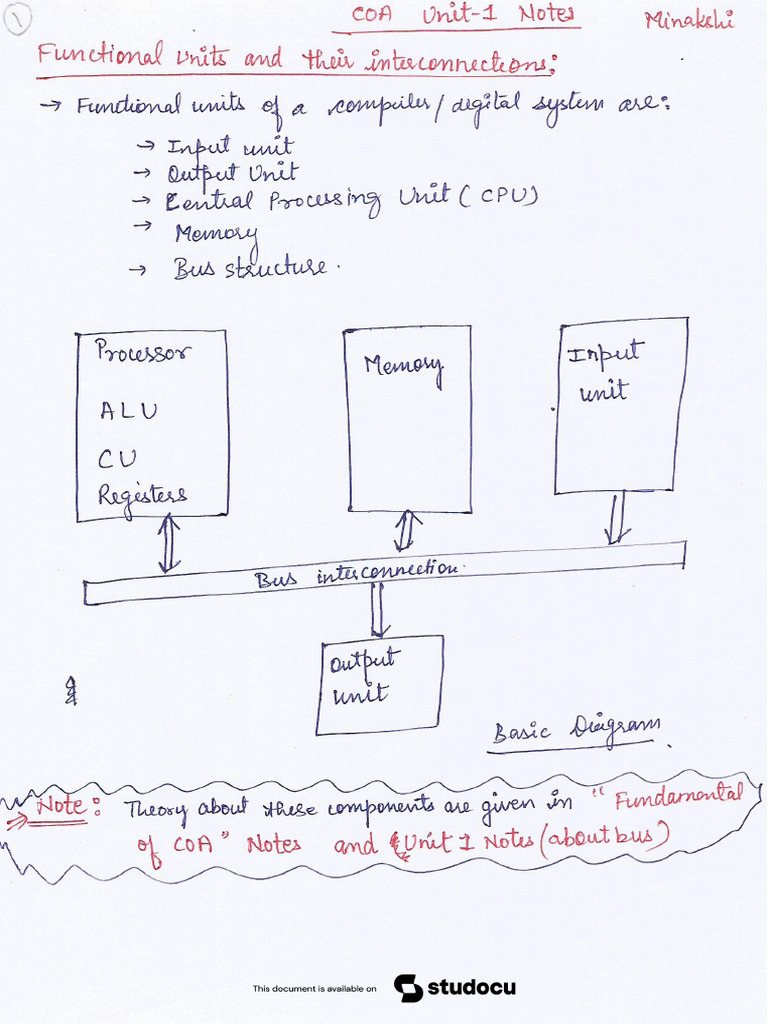 1
COA Unit-1 Notes
Minakshi
Functional Units and their interconnections:
→ Functional units of a computer/digital system are:
→ Input unit
→ Output Unit
→ Central Processing Unit (CPU)
→ Memory
→ Bus structure.
Processor
ALU
CU
Registers
Memory
Input
unit
Bus interconnection.
Output
unit
Basic Diagram.
⇒ Note: Theory about these components are given in "Fundamental
of COA" Notes and Unit 1 Notes (about bus)
This document is available on
studocu